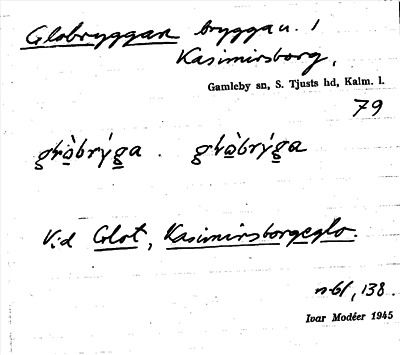 Globryggan brygga u. 1
Kasimirsborg,
Gamleby sn, S. Tjusts hd, Kalm. l.
79
glò̲brýg̲a . glò̲brýg̲a
Vid Glot, Kasimirsborgeglo.
n-61, 138.
Ivar Modéer 1945